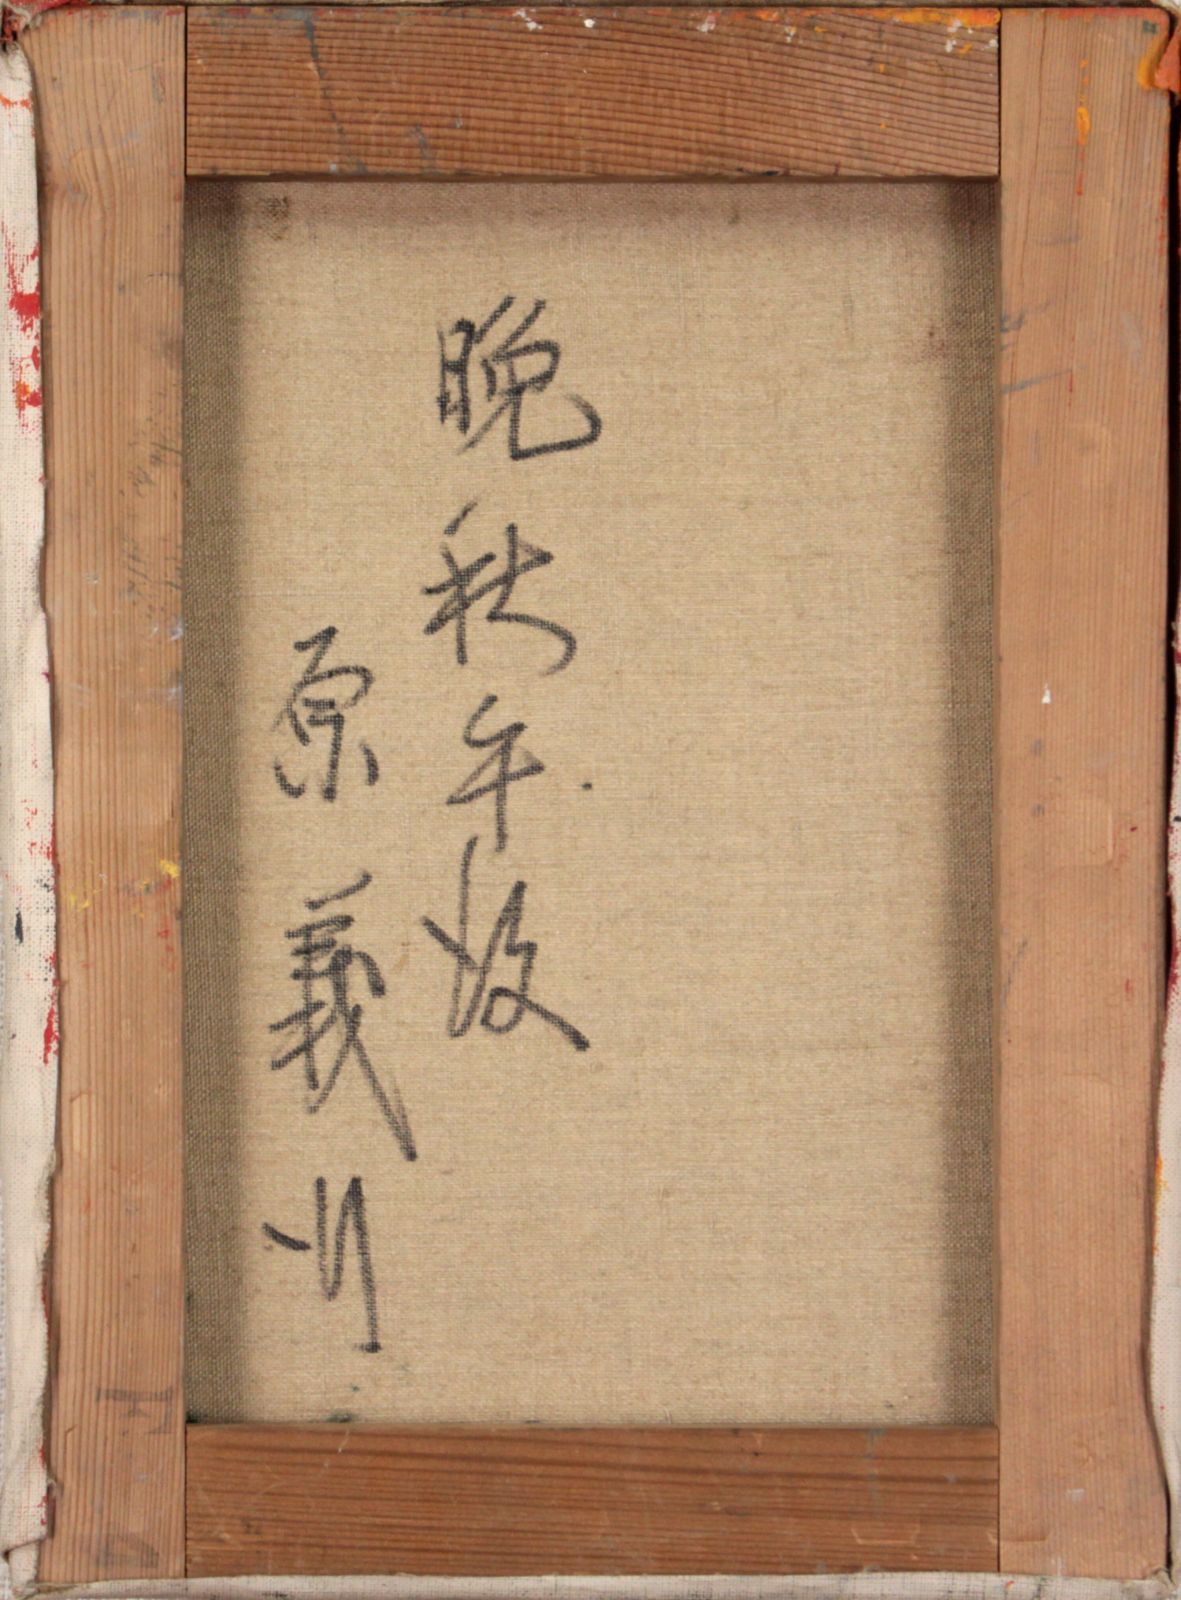 晩秋午後
原義行